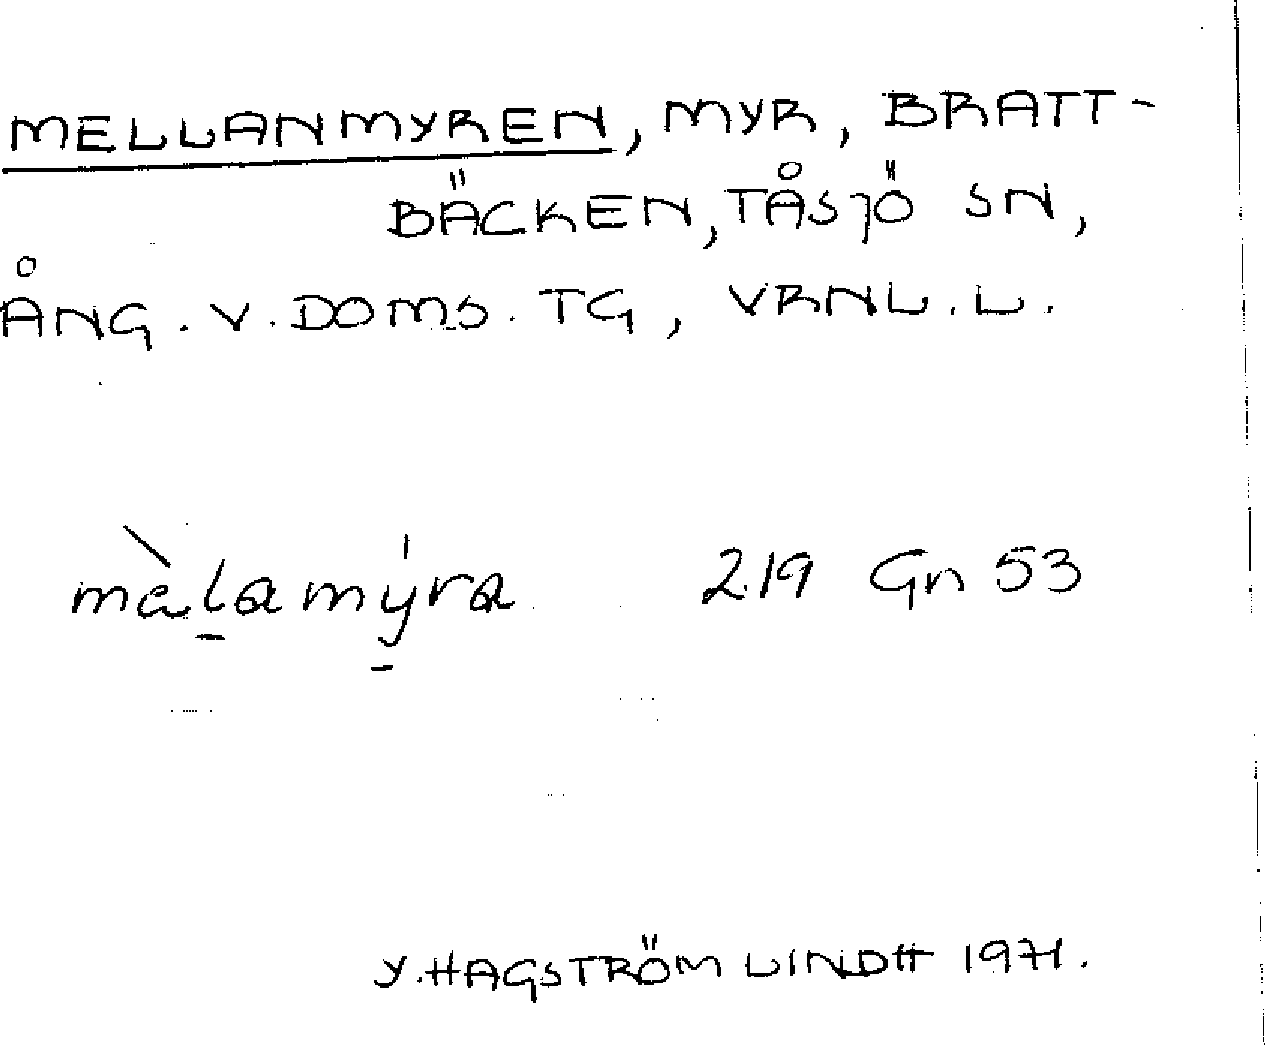 MELLANMYREN, MYR, BRATT-
BÄCKEN, TÅSJÖ SN,
ÅNG. V. DOMS. TG, VRNL. L.
mèl̠amy̠̍ra 219 Gn 53
Y. HAGSTRÖM LINDH 1971.